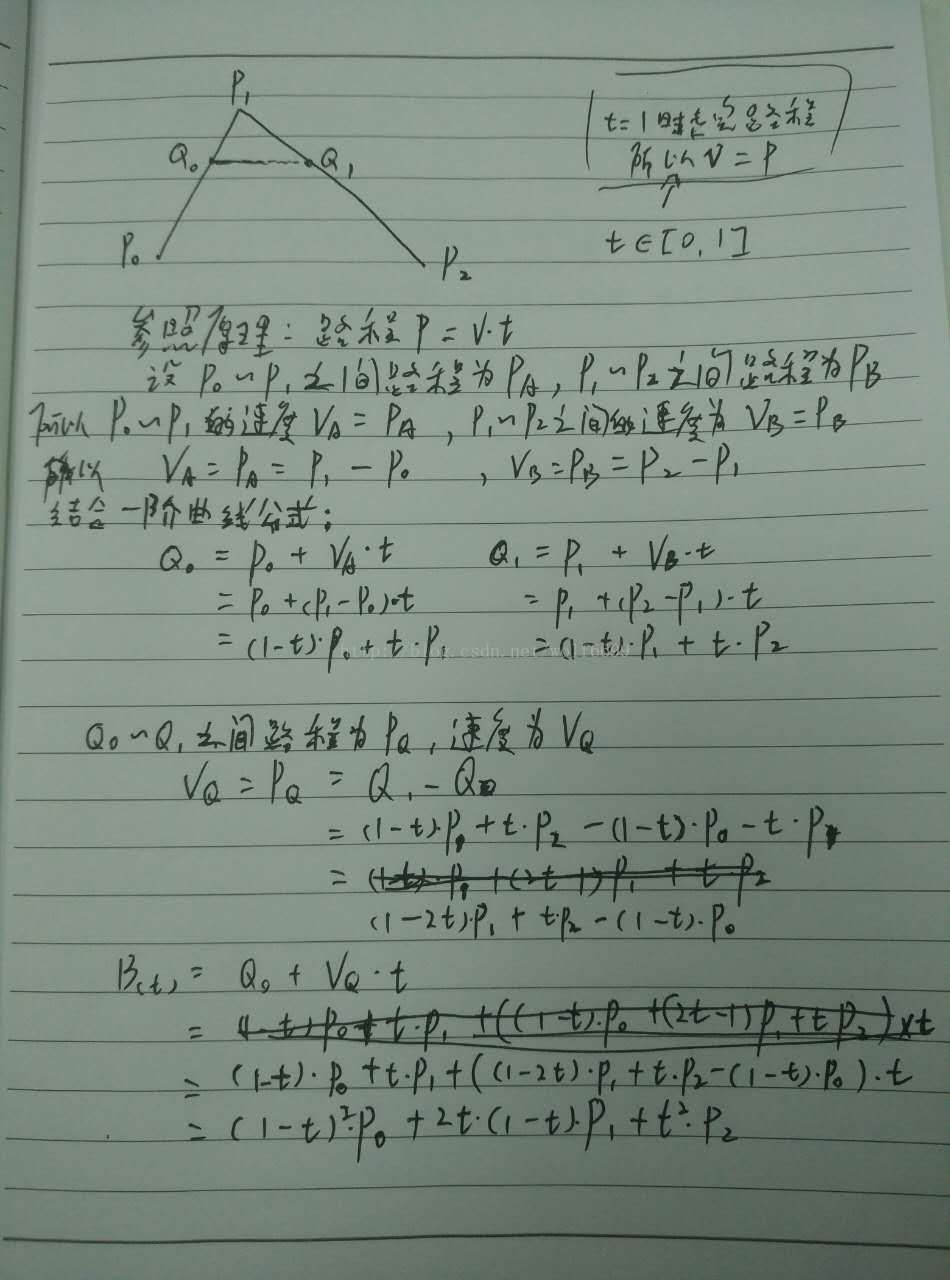 P₁
t=1时走完路程
Q₀ Q₁
所以 V = P
P₀ P₂
t∈[0,1]
参照原理: 路程P = V·t
设 P₀~P₁之间路程为PA, P₁~P₂之间路程为PB
所以 P₀~P₁的速度VA = PA, P₁~P₂之间的速度为 VB = PB
所以 VA = PA = P₁ - P₀, VB = PB = P₂ - P₁
结合一阶曲线公式:
Q₀ = P₀ + VA·t Q₁ = P₁ + VB·t
= P₀ + (P₁-P₀)·t = P₁ + (P₂-P₁)·t
= (1-t)·P₀ + t·P₁ = (1-t)·P₁ + t·P₂
Q₀~Q₁之间路程为PQ, 速度为VQ
VQ = PQ = Q₁ - Q₀
= (1-t)·P₁ + t·P₂ - (1-t)·P₀ - t·P₁
= (1-t)·P₀ + (2t-1)P₁ + t·P₂
(1-2t)·P₁ + t·P₂ - (1-t)·P₀
B(t) = Q₀ + VQ·t
= (1-t)P₀ + t·P₁ + ((1-t)·P₀ + (2t-1)P₁ + tP₂)×t
= (1-t)·P₀ + t·P₁ + ((1-2t)·P₁ + t·P₂ - (1-t)·P₀)·t
= (1-t)²·P₀ + 2t·(1-t)·P₁ + t²·P₂